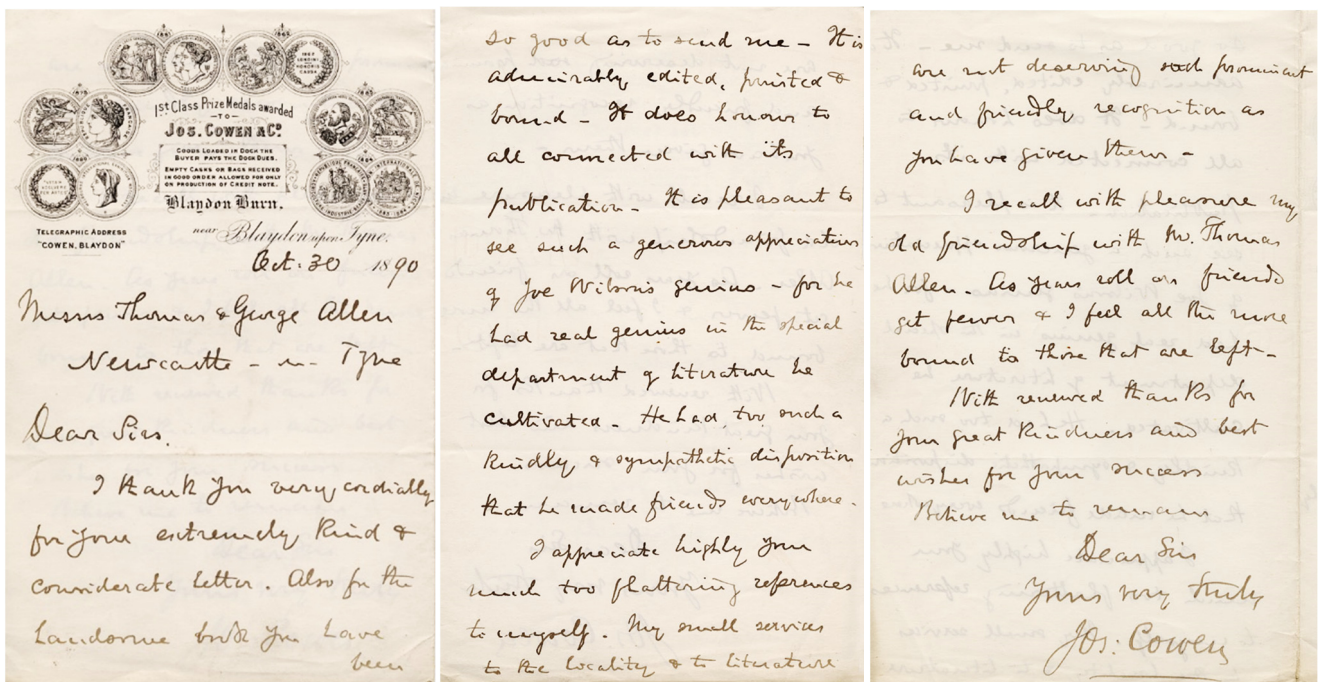 1st Class Prize Medals awarded
TO
JOS. COWEN & Co.
GOODS LOADED IN DOCK THE
BUYER PAYS THE DOCK DUES.
EMPTY CASKS OR BAGS RECEIVED
IN GOOD ORDER ALLOWED FOR ONLY
ON PRODUCTION OF CREDIT NOTE.
Blaydon Burn.
near Blaydon upon Tyne.
TELEGRAPHIC ADDRESS
"COWEN, BLAYDON"
Oct. 30 1890
Messrs Thomas & George Allen
Newcastle - - Tyne
Dear Sirs.
I thank you very cordially
for your extremely kind &
considerate letter. Also for the
handsome book you have
been
so good as to send me - It is
admirably edited, printed &
bound - It does honour to
all connected with its
publication - It is pleasant to
see such a generous appreciation
of Joe Wilson's genius - for he
had real genius in the special
department of literature he
cultivated - He had too such a
kindly & sympathetic disposition
that he made friends everywhere.
I appreciate highly your
much too flattering references
to myself. My small services
to the locality & to literature
are not deserving such prominent
and friendly recognition as
you have given them -
I recall with pleasure my
old friendship with Mr. Thomas
Allen - As years roll on friends
get fewer & I feel all the more
bound to those that are left -
With renewed thanks for
your great kindness and best
wishes for your success
Believe me to remain
Dear Sirs
Yours very truly
Jos: Cowen